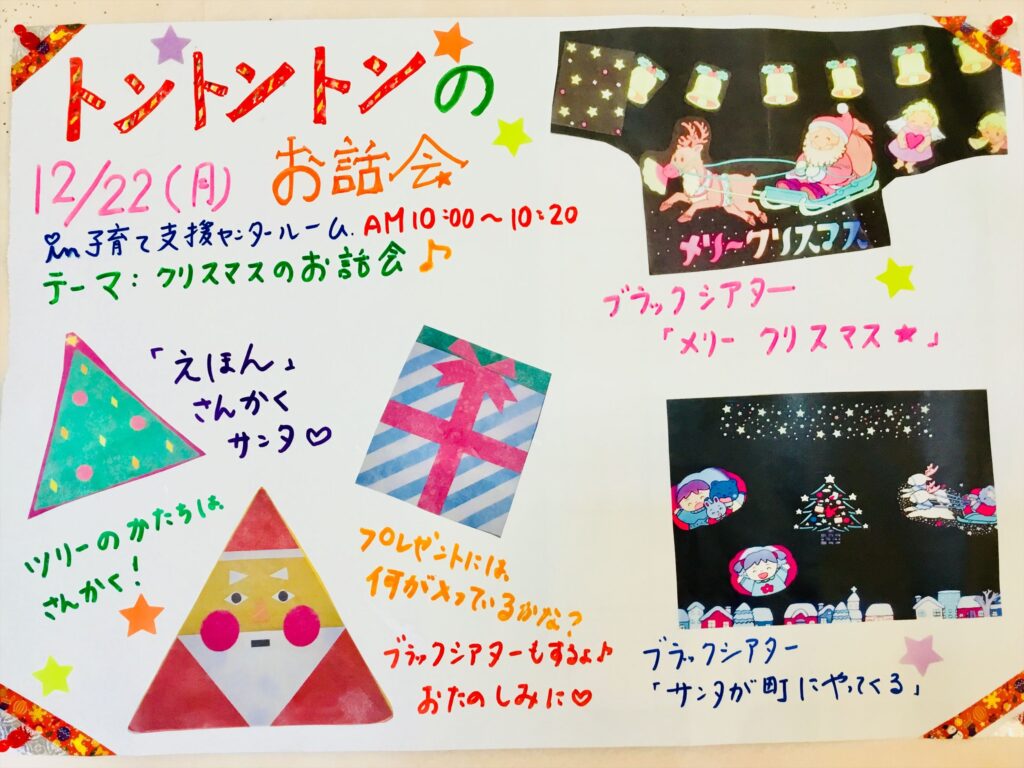 トントントンの
お話会
12/22(月)
in 子育て支援センタールーム. AM10:00～10:20
テーマ: クリスマスのお話会♪
メリークリスマス
ブラックシアター
「メリークリスマス★」
「えほん」
さんかく
サンタ♡
ツリーのかたちは
さんかく!
プレゼントには
何が入っているかな?
ブラックシアターもするよ♪
おたのしみに♡
ブラックシアター
「サンタが町にやってくる」